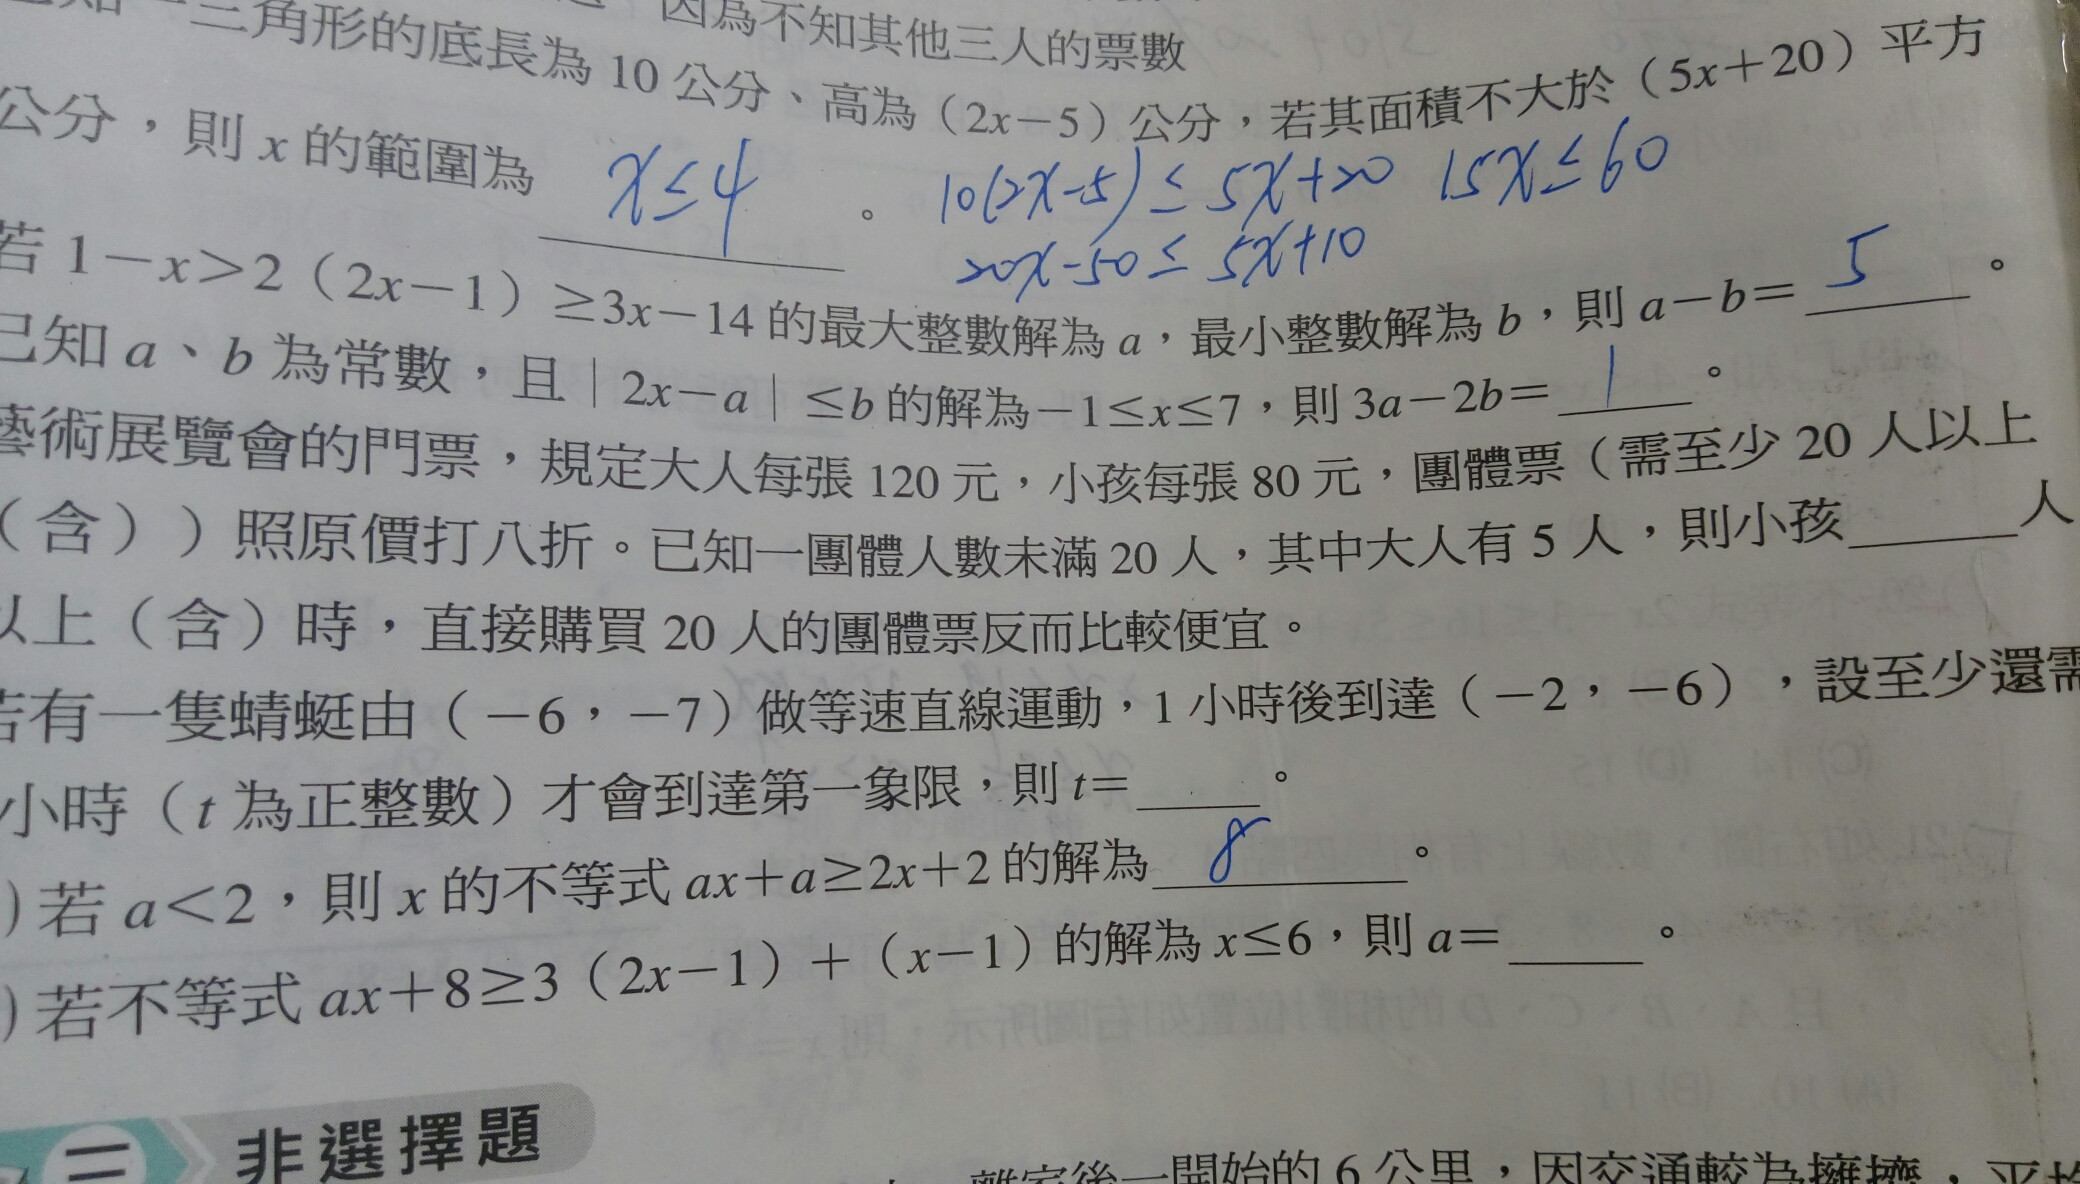 因為不知其他三人的票數
一三角形的底長為 10 公分、高為（2x－5）公分，若其面積不大於（5x＋20）平方
公分，則 x 的範圍為 x≤4 。 10(2x-5)≤5x+20 15x≤60
20x-50≤5x+10
若 1－x＞2（2x－1）≥3x－14 的最大整數解為 a，最小整數解為 b，則 a－b＝ 5 。
已知 a、b 為常數，且｜2x－a｜≤b 的解為－1≤x≤7，則 3a－2b＝ 1 。
藝術展覽會的門票，規定大人每張 120 元，小孩每張 80 元，團體票（需至少 20 人以上
（含））照原價打八折。已知一團體人數未滿 20 人，其中大人有 5 人，則小孩＿＿＿人
以上（含）時，直接購買 20 人的團體票反而比較便宜。
若有一隻蜻蜓由（－6，－7）做等速直線運動，1 小時後到達（－2，－6），設至少還需
小時（t 為正整數）才會到達第一象限，則 t＝＿＿＿。
）若 a＜2，則 x 的不等式 ax＋a≥2x＋2 的解為 8 。
）若不等式 ax＋8≥3（2x－1）＋（x－1）的解為 x≤6，則 a＝＿＿＿。
二 非選擇題
離家後一開始的 6 公里，因交通較為擁擠，平均